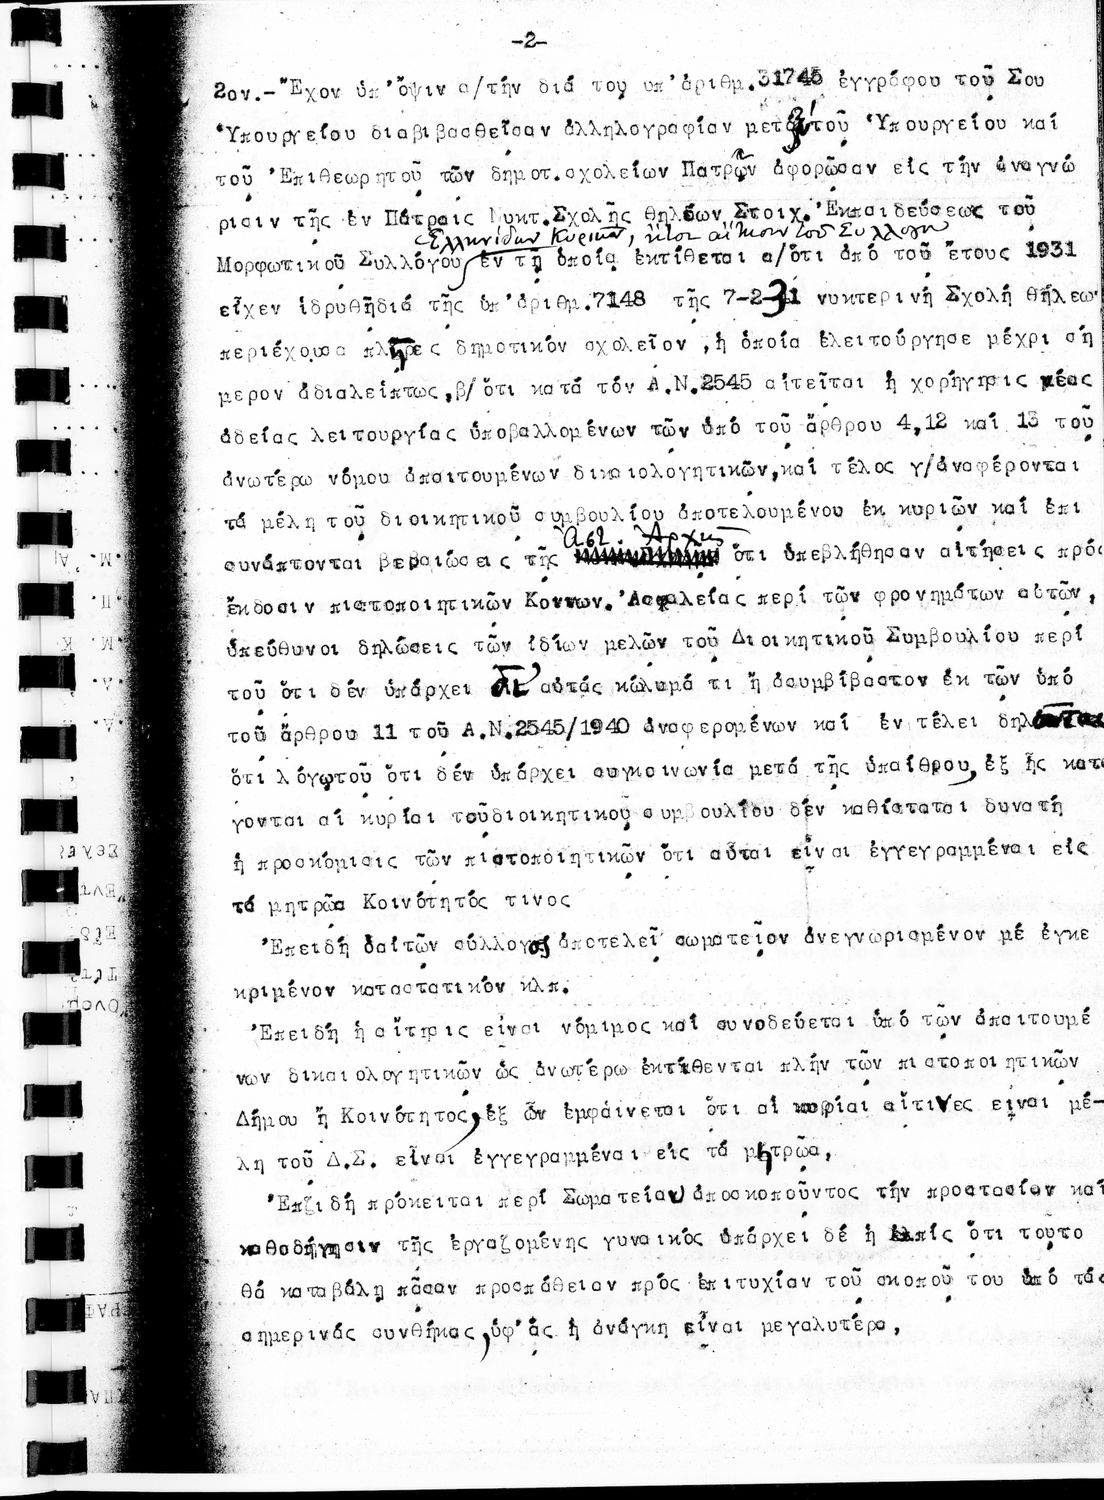 -2-
2ον.- Ἔχον ὑπ' ὄψιν α/τήν διά του υπ' ἀριθμ.31745 ἐγγράφου τοῦ Σου
Ὑπουργείου διαβιβασθεῖσαν ἀλληλογραφίαν μεταξύ τοῦ Ὑπουργείου καί
τοῦ Ἐπιθεωρητοῦ τῶν δημοτ.σχολείων Πατρῶν ἀφορῶσαν εἰς τήν ἀναγνώ
ρισιν τῆς ἐν Πάτραις Νυκτ.Σχολῆς θηλέων Στοιχ.Ἐκπαιδεύσεως τοῦ
Ἑλληνίδων Κυριῶν, τοῦ Συλλόγου
Μορφωτικοῦ Συλλόγου ἐν τῇ ὁποίᾳ ἐκτίθεται α/ὅτι ἀπό τοῦ ἔτους 1931
εἶχεν ἱδρυθῆδιά τῆς ὑπ' ἀριθμ.7148 τῆς 7-2-31 νυκτερινή Σχολή θήλεω
περιέχουσα πλῆρες δημοτικόν σχολεῖον ,ἡ ὁποία ἐλειτούργησε μέχρι σή
μερον ἀδιαλείπτως,β/ὅτι κατά τόν Α.Ν.2545 αἰτεῖται ἡ χορήγησις νέας
ἀδείας λειτουργίας ὑποβαλλομένων τῶν ὑπό τοῦ ἄρθρου 4,12 καί 13 τοῦ
ἀνωτέρω νόμου ἀπαιτουμένων δικαιολογητικῶν,καί τέλος γ/ἀναφέρονται
τά μέλη τοῦ διοικητικοῦ συμβουλίου ἀποτελουμένου ἐκ κυριῶν καί ἐπι
Ἀστ. Ἀρχῆς
συνάπτονται βεβαιώσεις τῆς ὅτι ὑπεβλήθησαν αἰτήσεις πρός
ἔκδοσιν πιστοποιητικῶν Κοινων.Ἀσφαλείας περί τῶν φρονημάτων αὐτῶν,
ὑπεύθυνοι δηλώσεις τῶν ἰδίων μελῶν τοῦ Διοικητικοῦ Συμβουλίου περί
τοῦ ὅτι δέν ὑπάρχει δι' αὐτάς κώλυμά τι ἤ ἀσυμβίβαστον ἐκ τῶν ὑπό
τοῦ ἄρθρου 11 τοῦ Α.Ν.2545/1940 ἀναφερομένων καί ἐν τέλει
ὅτι λόγῳτοῦ ὅτι δέν ὑπάρχει συγκοινωνία μετά τῆς ὑπαίθρου,ἐξ ἧς κατα
γονται αἱ κυρίαι τοῦδιοικητικοῦ συμβουλίου δέν καθίσταται δυνατή
ἡ προσκόμισις τῶν πιστοποιητικῶν ὅτι αὗται εἶναι ἐγγεγραμμέναι εἰς
τά μητρῶα Κοινότητός τινος
Ἐπειδή ὁαἰτῶν σύλλογος ἀποτελεῖ σωματεῖον ἀνεγνωρισμένον μέ ἐγκε
κριμένον καταστατικόν κλπ.
Ἐπειδή ἡ αἴτησις εἶναι νόμιμος καί συνοδεύεται ὑπό τῶν ἀπαιτουμέ
νων δικαιολογητικῶν ὡς ἀνωτέρω ἐκτίθενται πλήν τῶν πιστοποιητικῶν
Δήμου ἤ Κοινότητος,ἐξ ὧν ἐμφαίνεται ὅτι αἱ κυρίαι αἵτινες εἶναι μέ-
λη τοῦ Δ.Σ. εἶναι ἐγγεγραμμέναι εἰς τά μητρῶα,
Ἐπειδή πρόκειται περί Σωματείου ἀποσκοποῦντος τήν προστασίαν καί
καθοδήγησιν τῆς ἐργαζομένης γυναικός ὑπάρχει δέ ἡ ἐλπίς ὅτι τοῦτο
θά καταβάλῃ πᾶσαν προσπάθειαν πρός ἐπιτυχίαν τοῦ σκοποῦ του ὑπό τάς
σημερινάς συνθήκας,ὑφ' ἅς ἡ ἀνάγκη εἶναι μεγαλυτέρα,